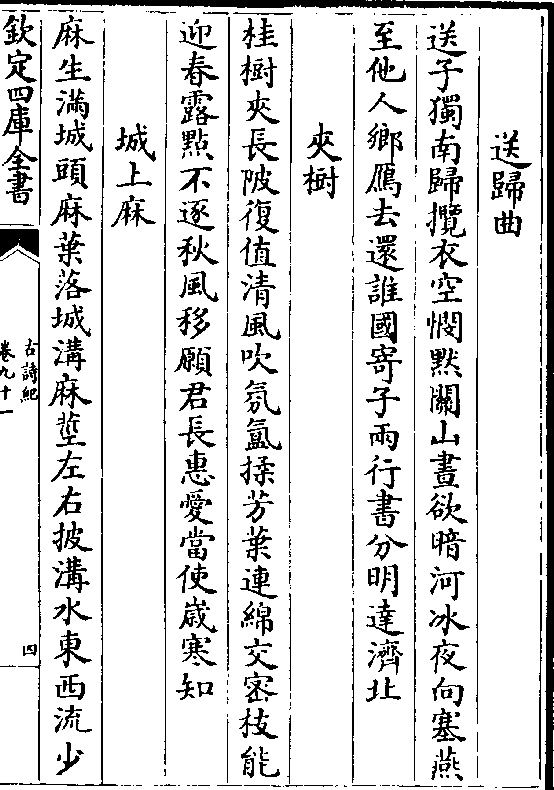 送歸曲
送子獨南歸攬衣空憫默關山晝欲暗河冰夜向塞燕
至他人鄉鴈去還誰國寄子兩行書分明達濟北
夾樹
桂樹夾長陂復值清風吹氛氳揉芳葉連綿交密枝能
迎春露點不逐秋風移願君長惠愛當使歲寒知
城上麻
麻生滿城頭麻葉落城溝麻莖左右披溝水東西流少
欽定四庫全書
古詩紀
卷九十一
四